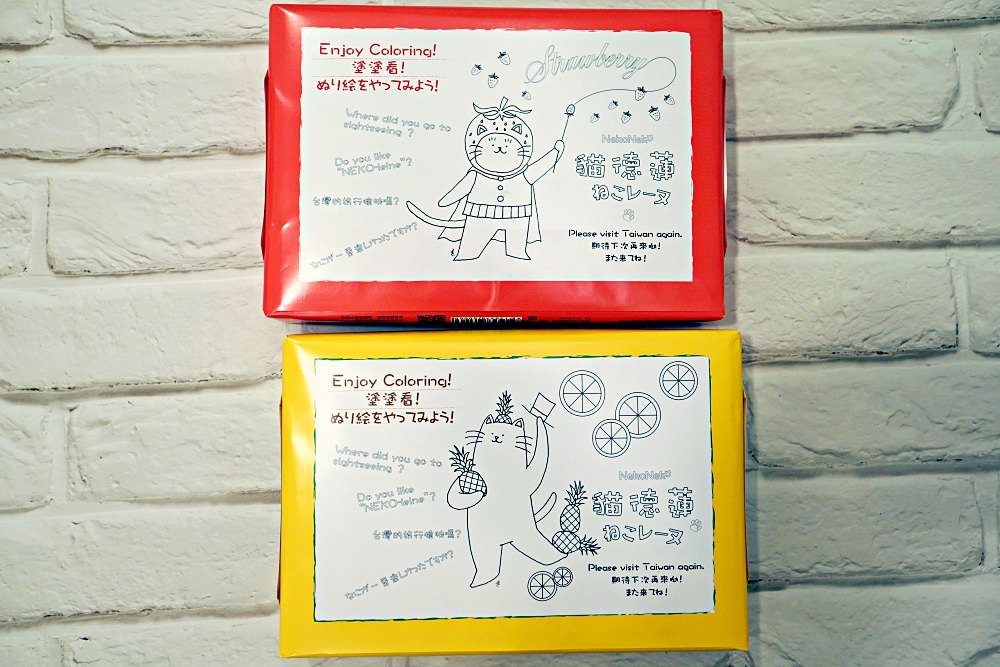 Enjoy Coloring!
塗塗看!
ぬり絵をやってみよう!
Strawberry
Where did you go to
sightseeing ?
Do you like
"NEKO-leine"?
NekoNeko
貓德蓮
ねこレーヌ
Please visit Taiwan again.
期待下次再來啦!
また来てね!
Enjoy Coloring!
塗塗看!
ぬり絵をやってみよう!
Where did you go to
sightseeing ?
Do you like
"NEKO-leine"?
NekoNeko
貓德蓮
ねこレーヌ
Please visit Taiwan again.
期待下次再來啦!
また来てね!